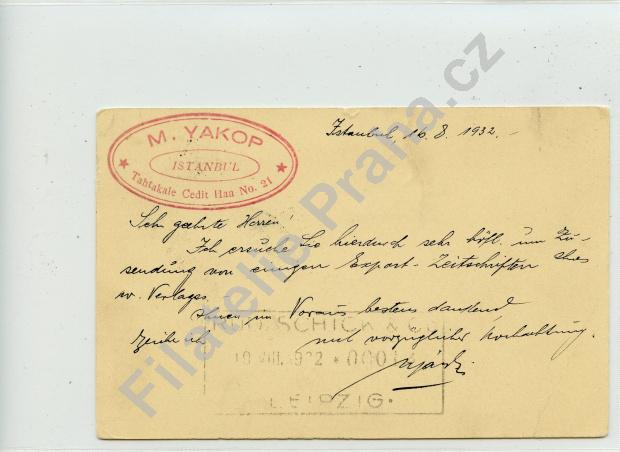 M. YAKOP
ISTANBUL
Tahtakale Cedit Han No. 21
Istanbul, 16. 8. 1932.-
Sehr geehrte Herren!
Ich ersuche Sie hierdurch sehr höfl. um Zu-
sendung von einigen Export-Zeitschriften Ihres
w. Verlages.
Ihnen im Voraus bestens dankend
zeichne ich mit vorzüglicher Hochachtung.
RUD. SCHICK & Co
18 VIII. 1932 * 0001
LEIPZIG.
Filatelie Praha.cz